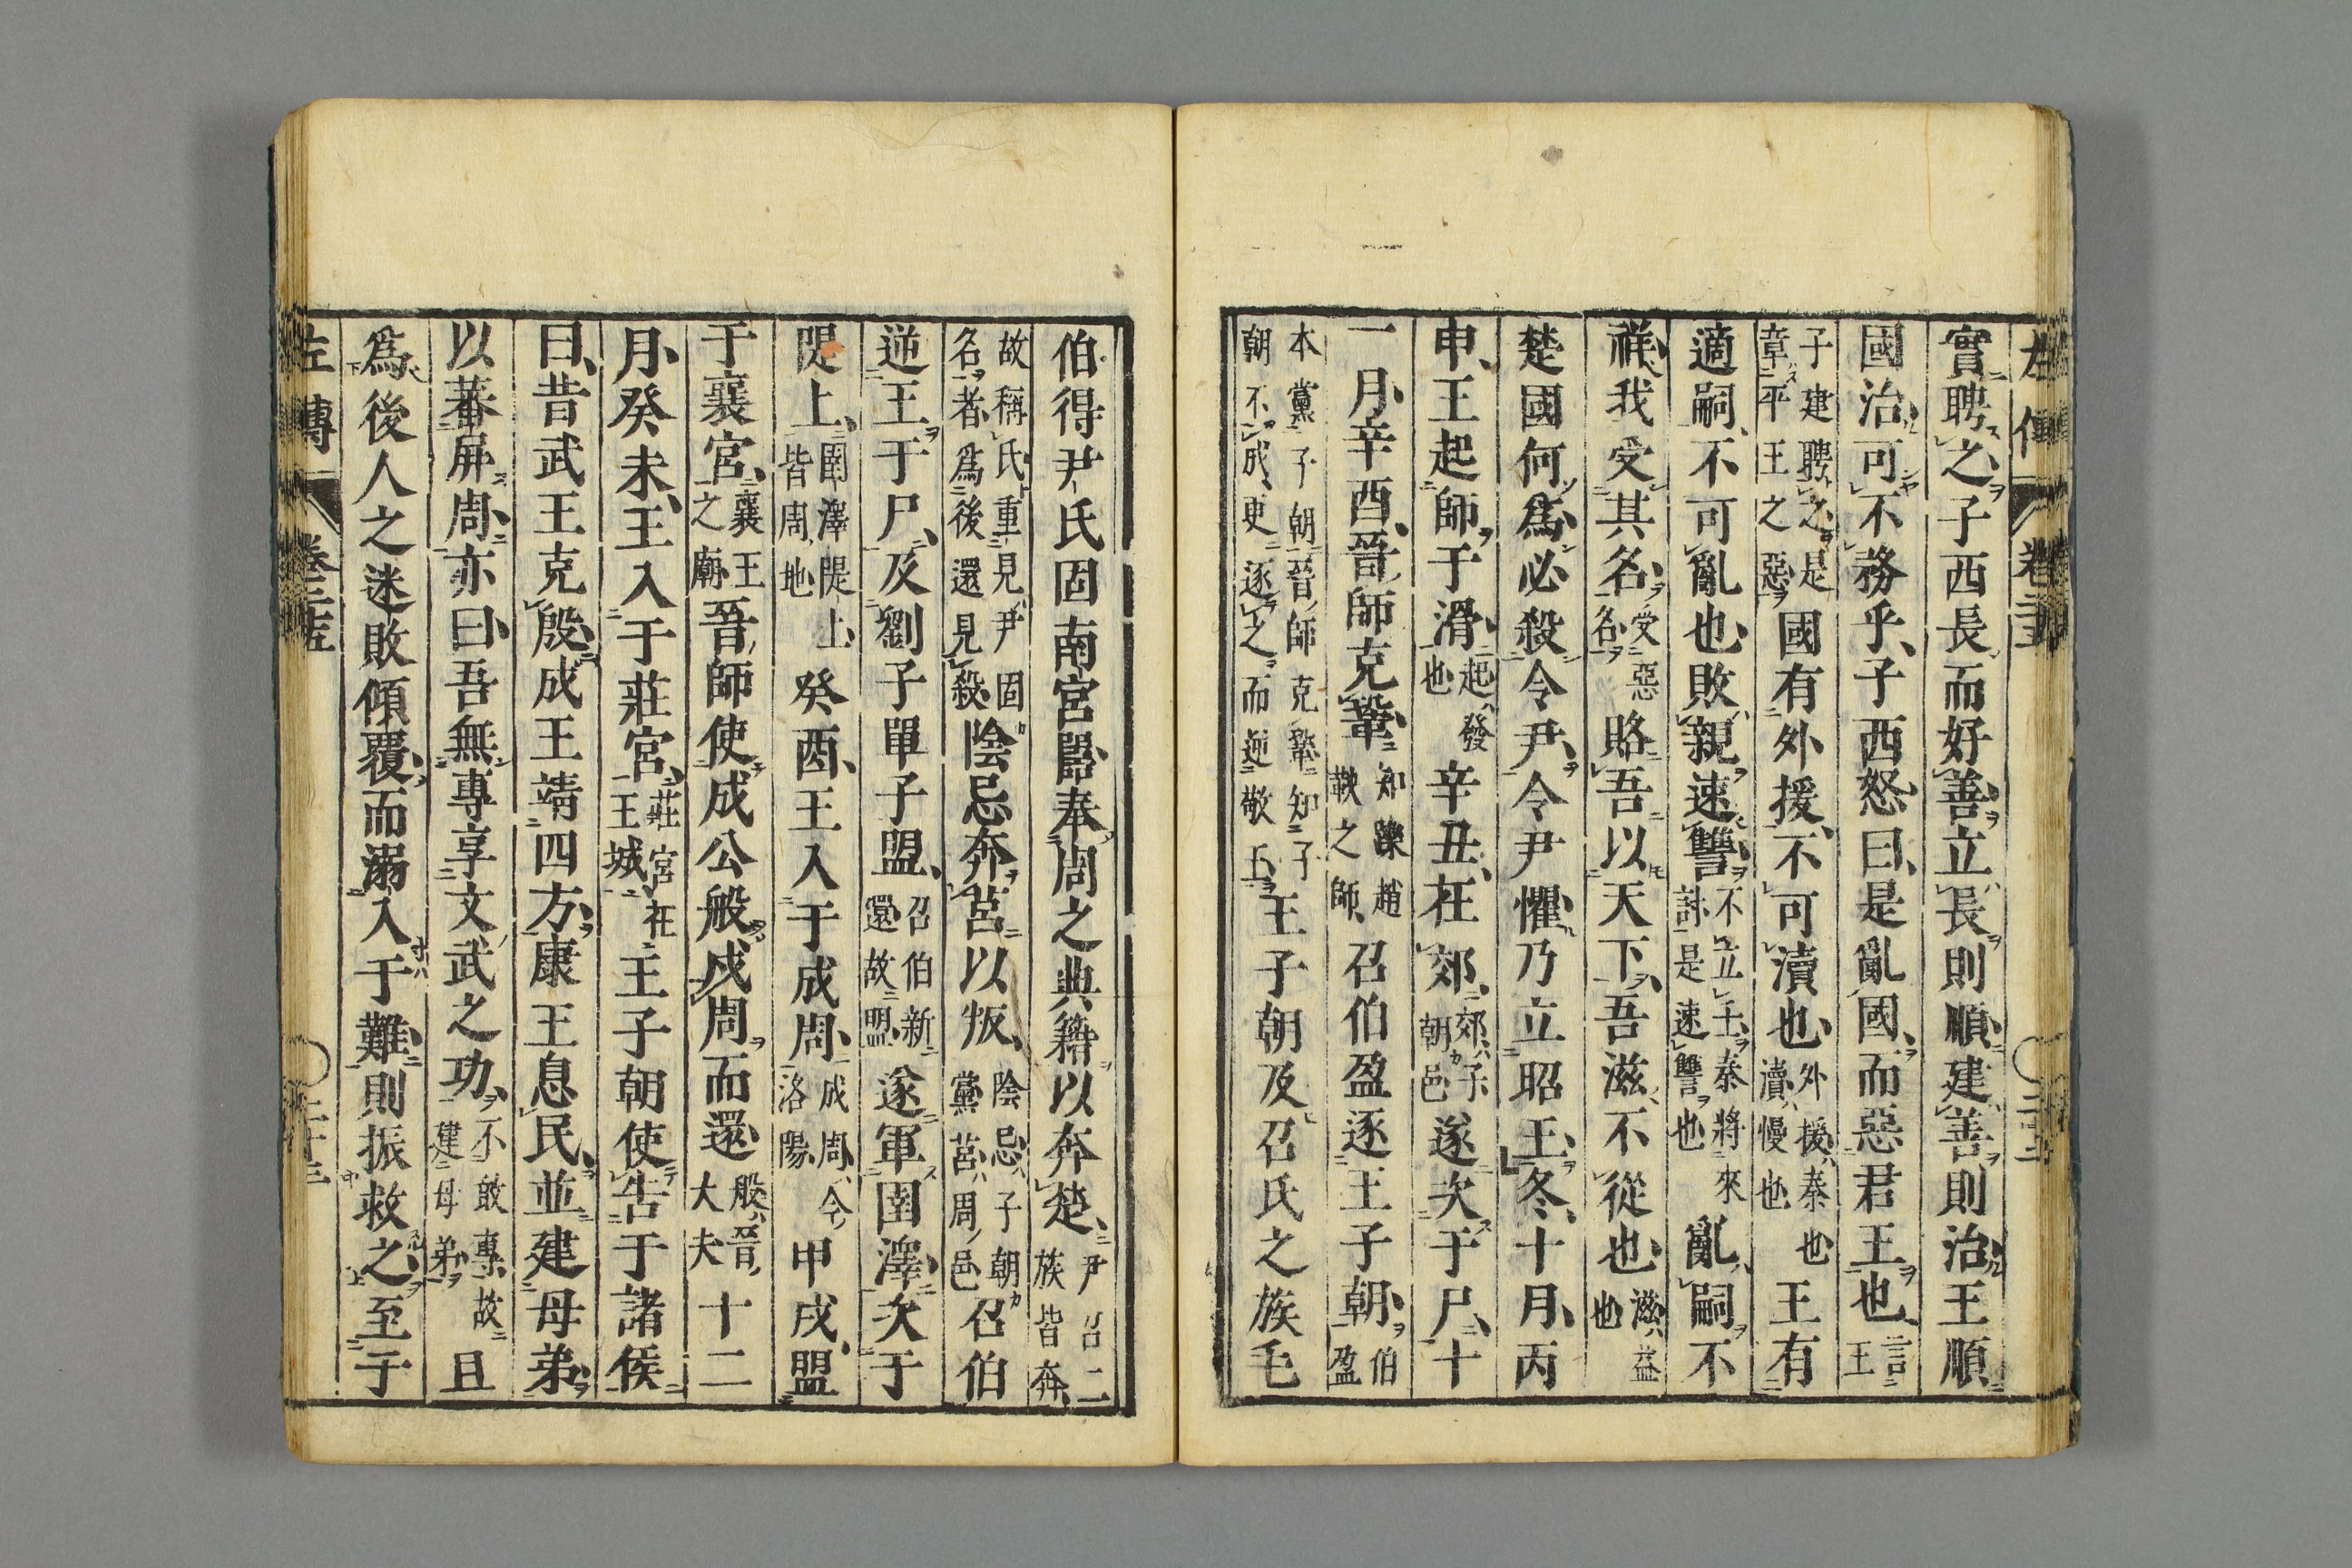 左傳 卷二十五
實聘之子西長而好善立長則順建善則治王順
國治可不務乎子西怒曰是亂國而惡君王也言王
子建聘之是章平王之惡國有外援不可瀆也外援秦也瀆慢也王有
適嗣不可亂也敗親速讐不立壬秦將來誅是速讐也亂嗣不
祥我受其名受惡名賂吾以天下吾滋不從也滋益也
楚國何爲必殺令尹令尹懼乃立昭王冬十月丙
申王起師于滑起發也辛丑在郊郊子朝邑遂次于尸十
一月辛酉晉師克鞏知躒趙鞅之師召伯盈逐王子朝伯盈
本黨子朝晉師克鞏知子朝不成更逐之而逆敬王王子朝及召氏之族毛
伯得尹氏固南宮嚚奉周之典籍以奔楚尹召二族皆奔
故稱氏重見尹固名者爲後還見殺陰忌奔莒以叛陰忌子朝黨莒周邑召伯
逆王于尸及劉子單子盟召伯新還故盟遂軍圉澤次于
隄上圉澤隄上皆周地癸酉王入于成周成周今洛陽甲戌盟
于襄宮襄王之廟晉師使成公般戍周而還般晉大夫十二
月癸未王入于莊宮莊宮在王城王子朝使告于諸侯
曰昔武王克殷成王靖四方康王息民並建母弟
以蕃屏周亦曰吾無專享文武之功不敢專故建母弟且
爲後人之迷敗傾覆而溺入于難則振救之至于
左傳 卷二十五 二十三